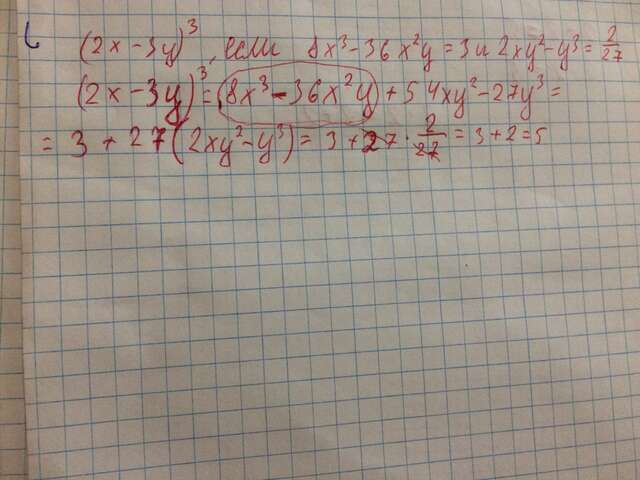 (2x-3y)³, если 8x³-36x²y=3 и 2xy²-y³=2/27
(2x-3y)³=(8x³-36x²y)+54xy²-27y³=
=3+27(2xy²-y³)=3+27·2/27=3+2=5